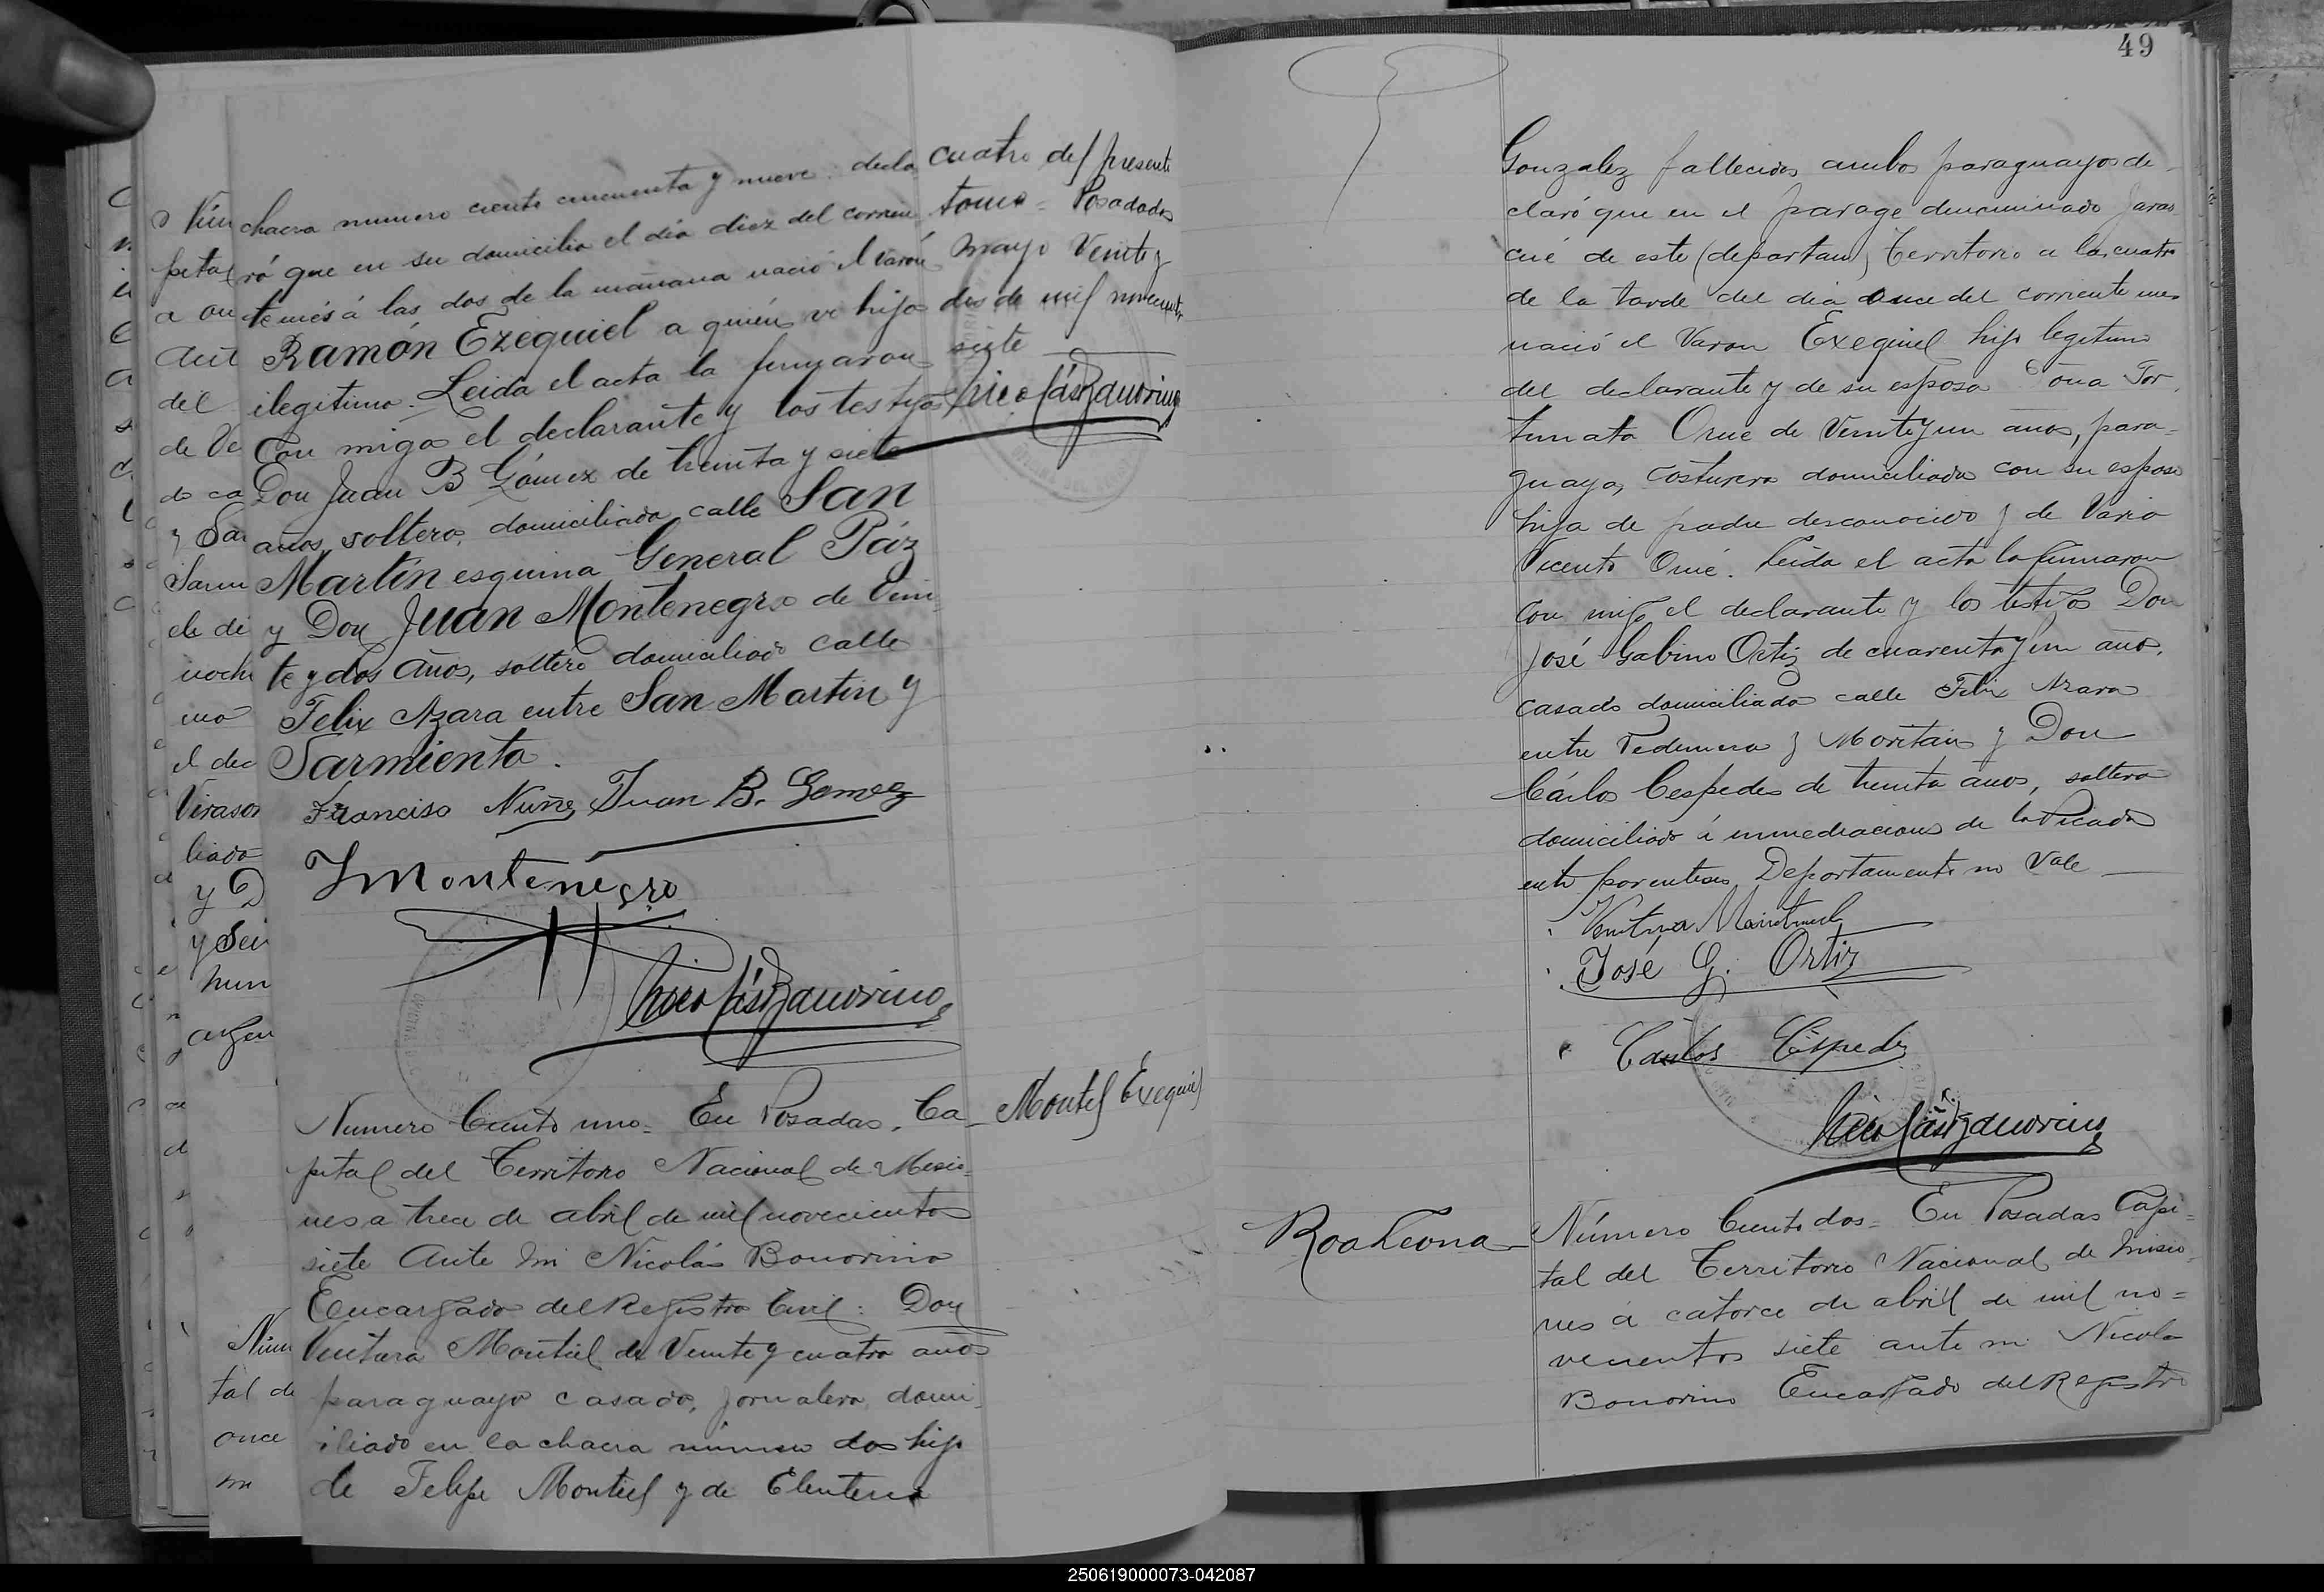 chacra numero ciento cincuenta y nueve: decla
ró que en su domicilio el día diez del corrien
te mes á las dos de la mañana nació el varón
Ramón Ezequiel a quién ve hijo
ilegitimo. Leida el acta la firmaron
Con migo el declarante y los testigos
Don Juan B Gómez de treinta y siete
años, soltero, domiciliado calle San
Martín esquina General Páz
y Don Juan Montenegro de Vein
te y dos años, soltero domiciliado calle
Felix Azara entre San Martin y
Sarmiento.
Francisco Nuñez Juan B. Gomez
J Montenegro
Nicolás Bonorino
cuatro del presente
tomo = Posadas
mayo Veinte y
dos de mil novecientos
siete
Nicolás Bonorino
Numero Ciento uno = En Posadas, Ca
pital del Territorio Nacional de Misio=
nes a trece de abril de mil novecientos
siete Ante mi Nicolás Bonorino
Encargado del Registro Civil: Don
Ventura Montiel de Veinte y cuatro años
paraguayo casado, jornalero, domi
iliado en la chacra número dos hijo
de Felipe Montiel y de Eleuteria
Montiel Exequiel
49
Gonzalez fallecidos ambos paraguayos de
claró que en el parage denominado Jaras
cué de este (departam) Territorio a las cuatro
de la tarde del dia once del corriente mes
nació el Varon Exequiel hijo legitimo
del declarante y de su esposa Doña For
tunata Orué de Veinte y un años, para=
guaya, costurera domiciliada con su esposo
hija de padre desconocido y de
Vicenta Orué. Leida el acta la firmaron
con migo el declarante y los testigos Don
José Gabino Ortiz de cuarenta y un años,
casado domiciliado calle Felix Azara
entre Pedernera y y Don
Cárlos Cespedes de treinta años, soltero
domiciliado á inmediaciones de la Picada
entre parentesis Departamento no Vale
Ventura Montiel
José G. Ortiz
Carlos Céspedes
Nicolás Bonorino
Roa Leona
Número Ciento dos = En Posadas Capi=
tal del Territorio Nacional de Misio
nes á catorce de abril de mil no=
vecientos siete ante mi Nicolas
Bonorino Encargado del Registro
250619000073-042087